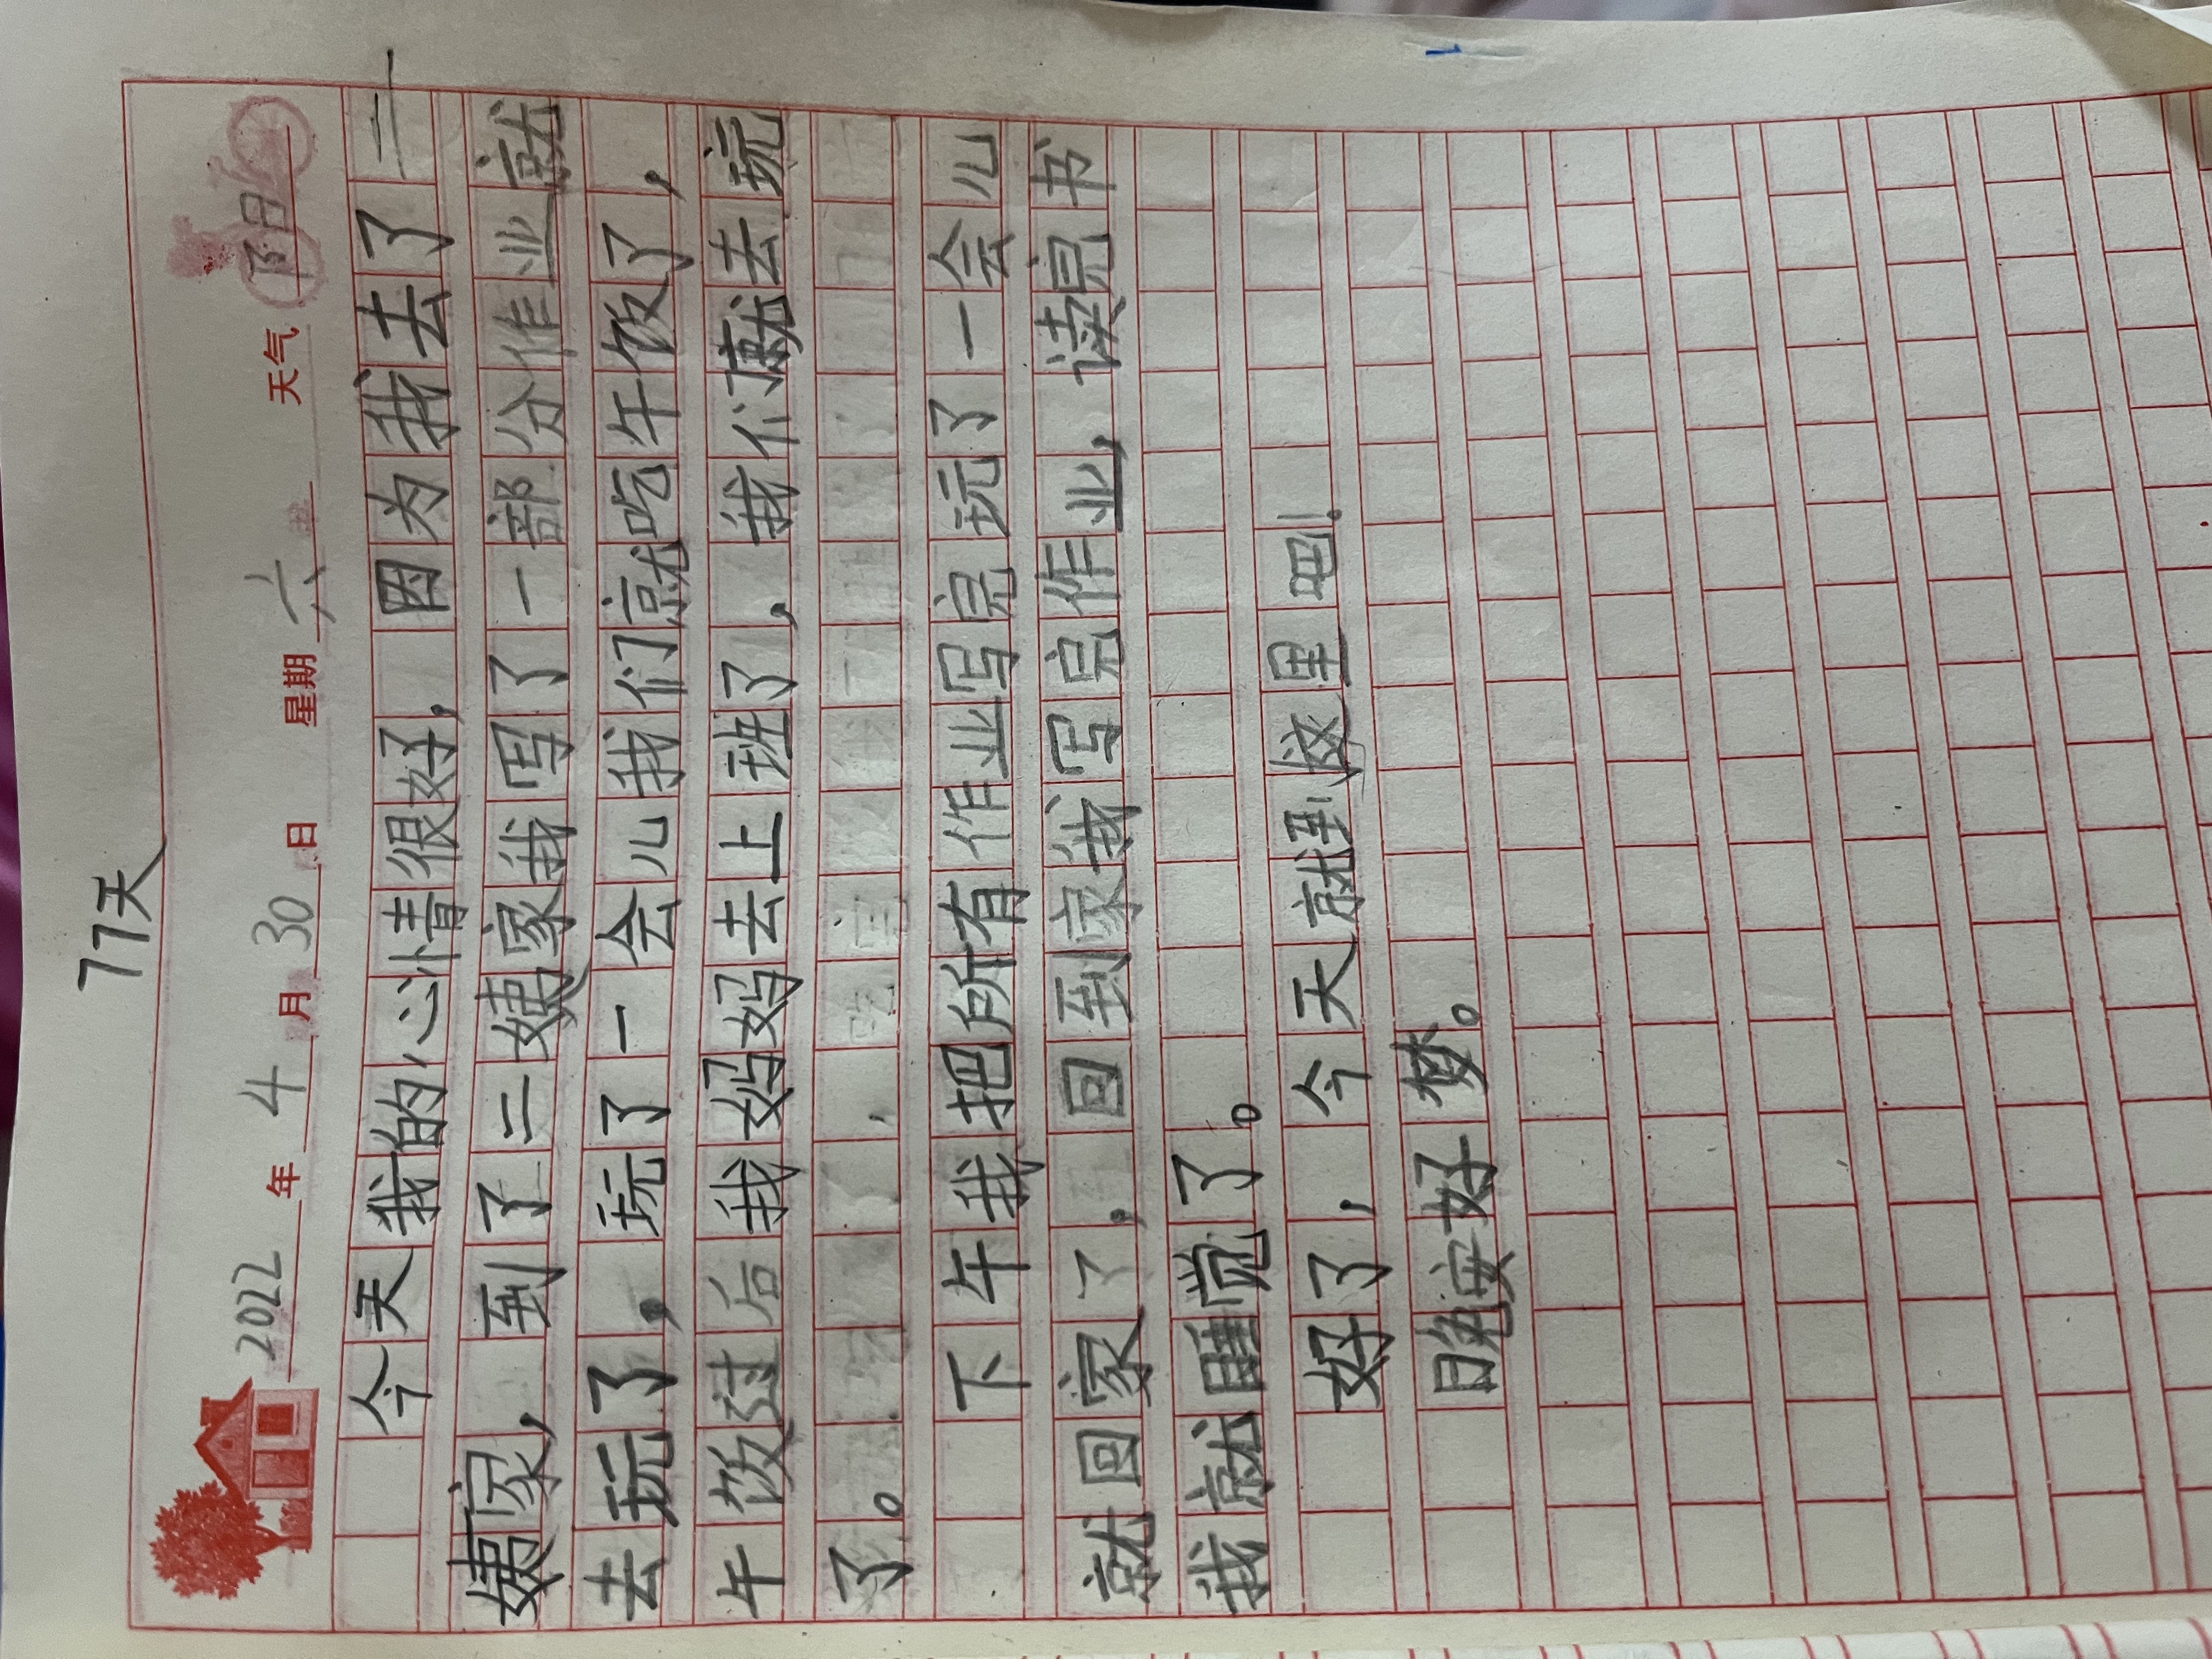 77天
2022年4月30日 星期六 天气阴
今天我的心情很好，因为我去了二
姨家，到了二姨家我写了一部分作业就
去玩了，玩了一会儿我们就吃午饭了，
午饭过后我妈妈去上班了，我们就去玩
了。
下午我把所有作业写完玩了一会儿
就回家了，回到家我写完作业，读完书
我就睡觉了。
好了，今天就到这里吧！
晚安好梦。